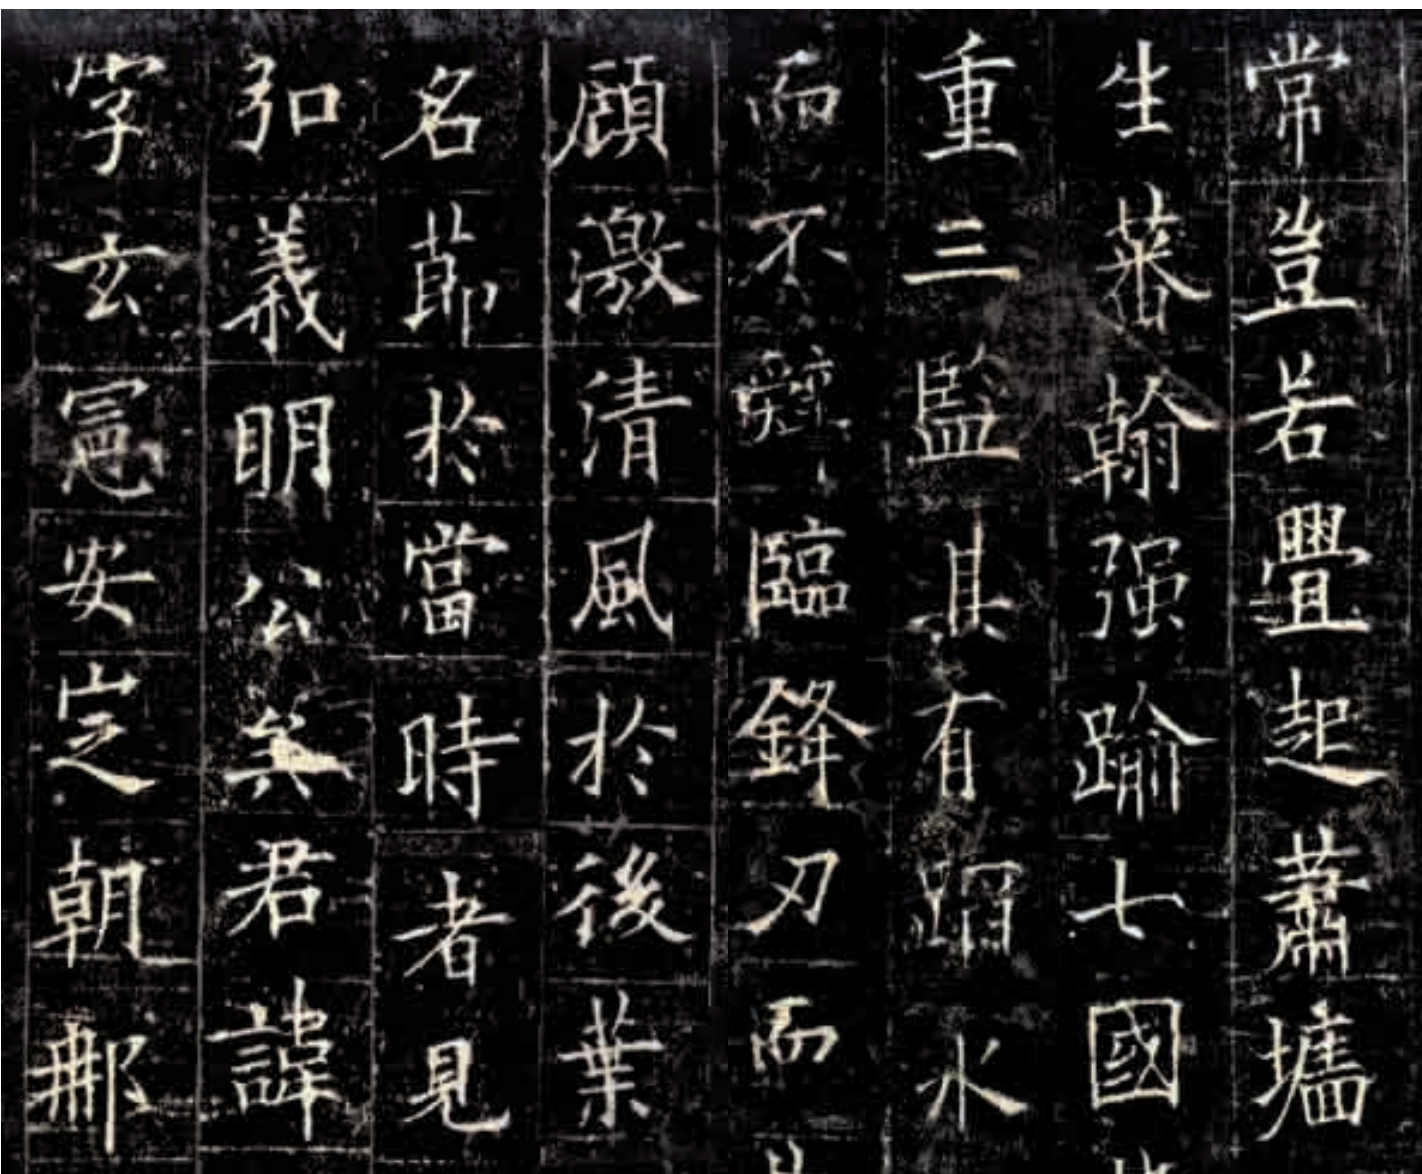 常豈若舋起蕭墻
生蕃翰强踰七國
重三監其有蹈水
而不辭臨鋒刃而
顧激清風於後葉
名節於當時者見
弘義明公矣君諱
字玄憲安定朝那